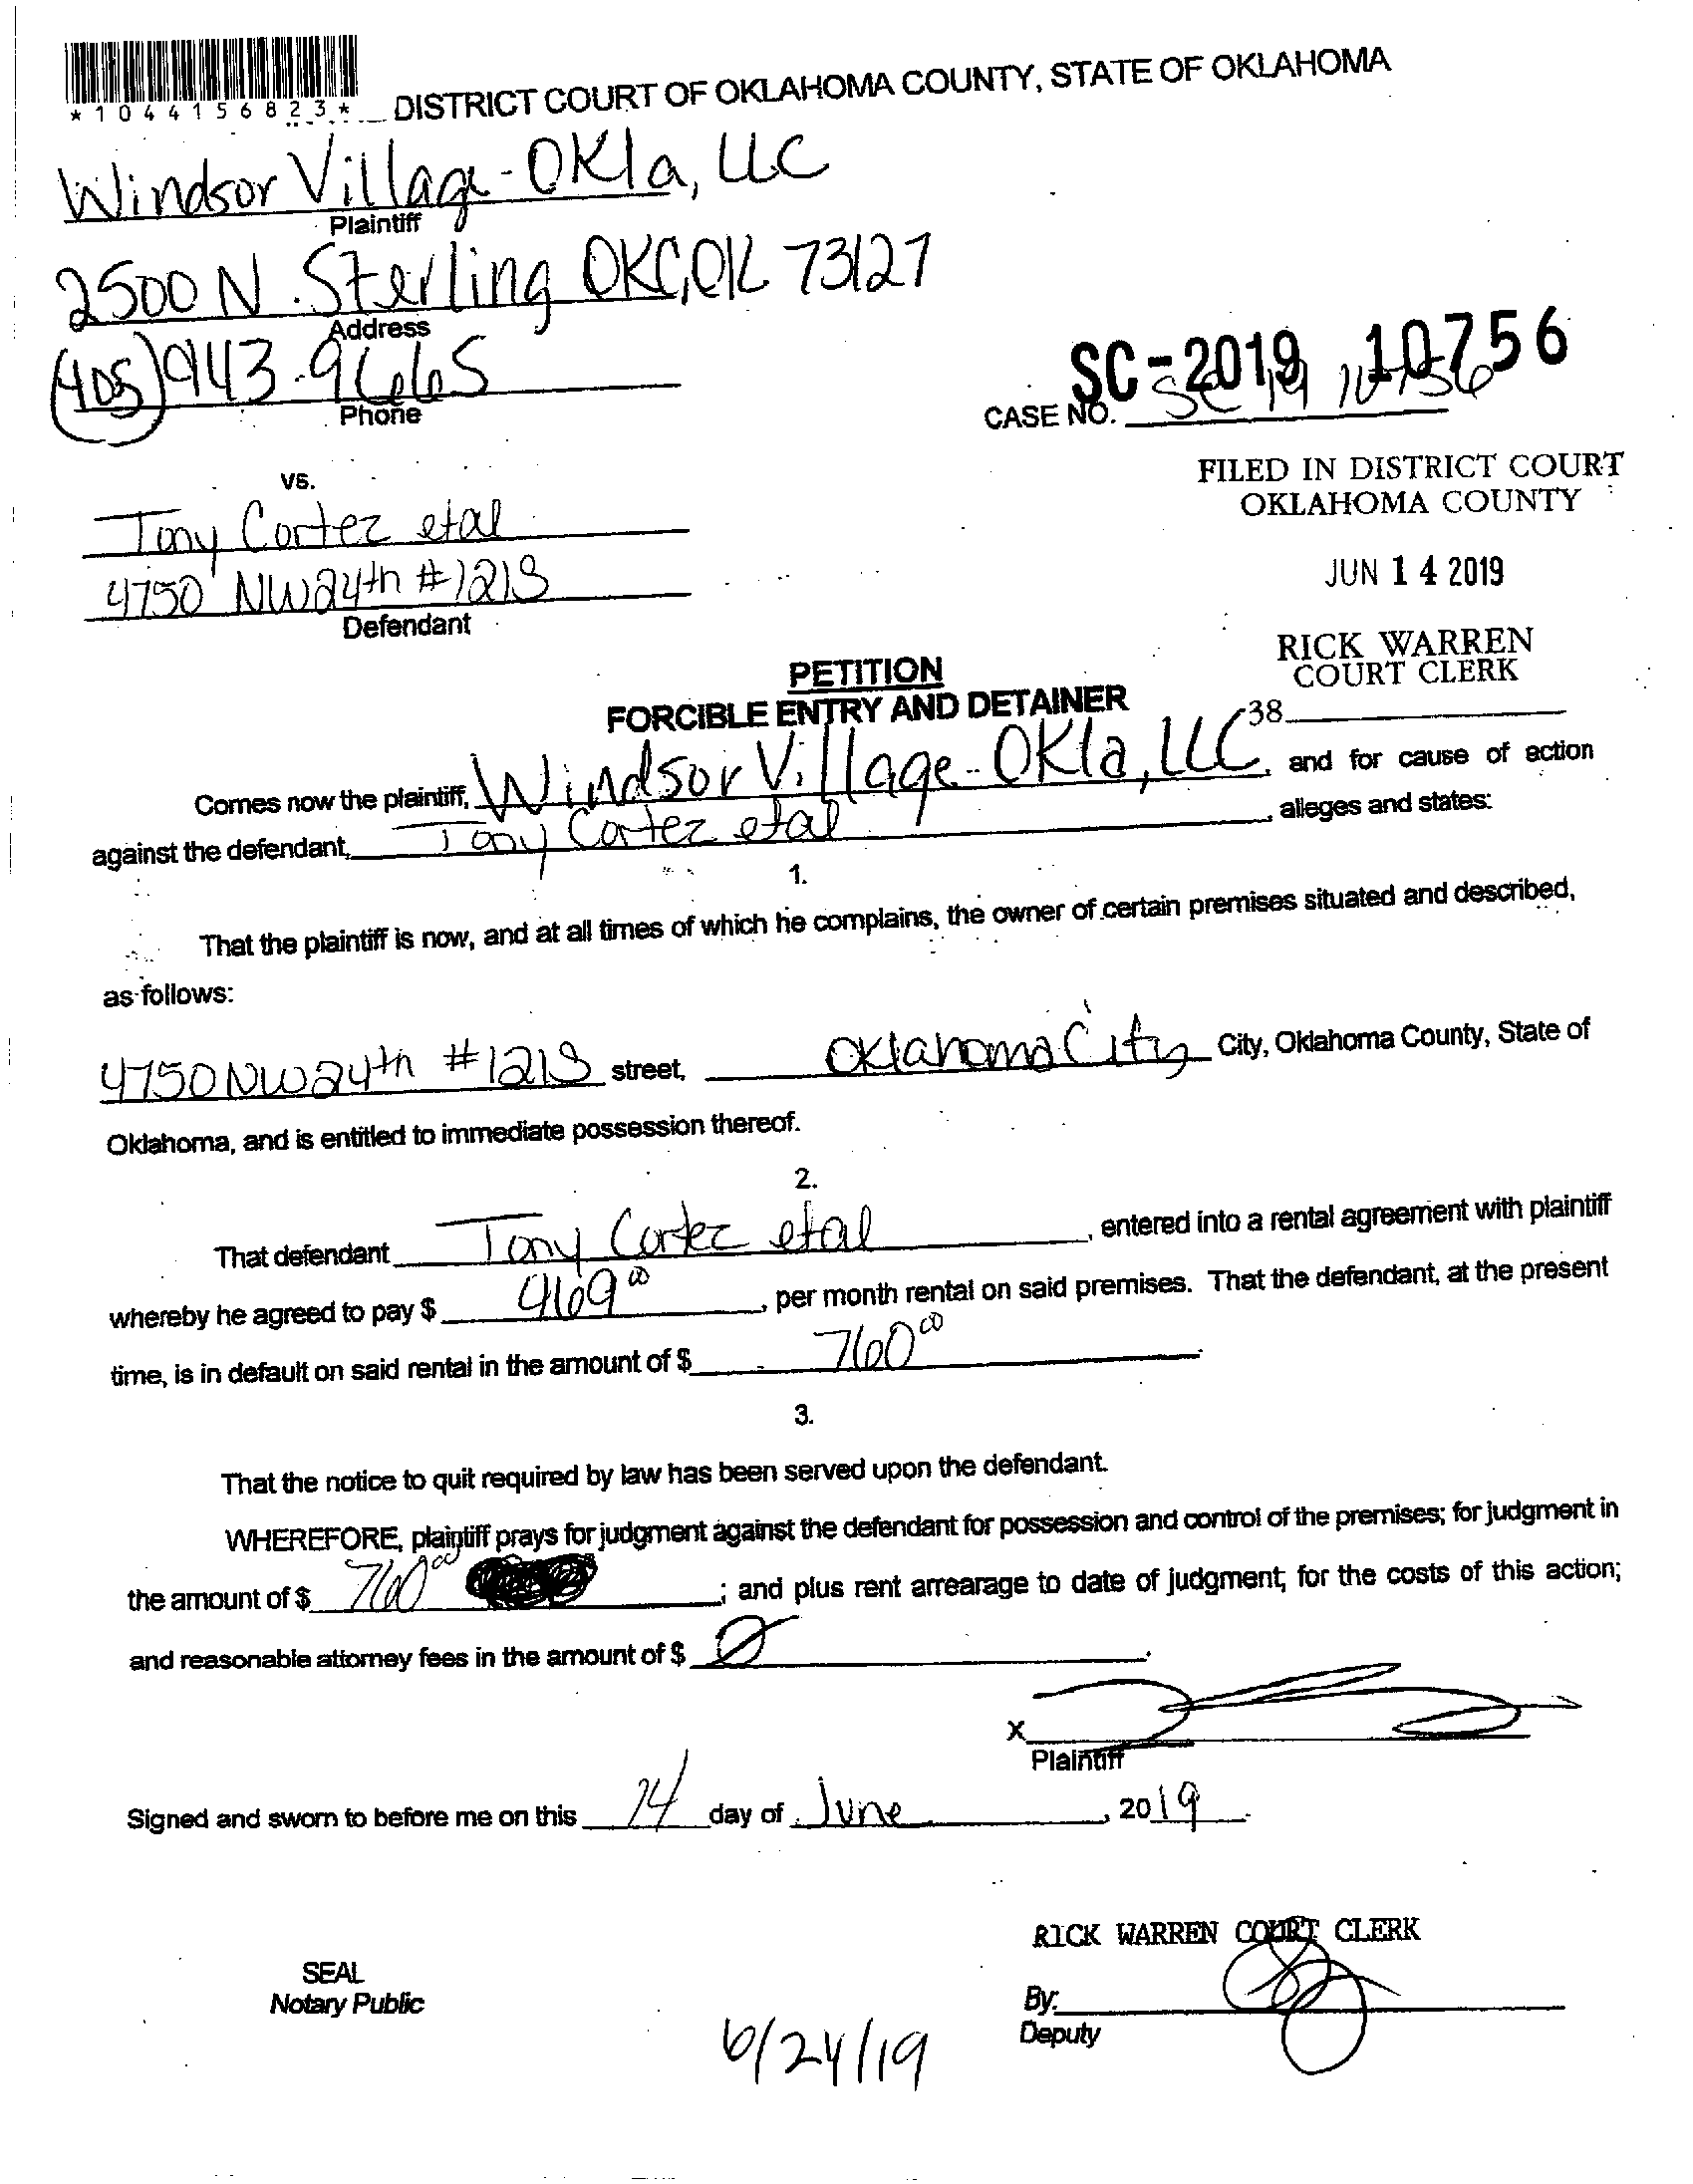 *1044156823*
DISTRICT COURT OF OKLAHOMA COUNTY, STATE OF OKLAHOMA
Windsor Village-Okla, LLC
Plaintiff
2500 N. Sterling OKC, OK 73127
Address
(405) 943-9665
Phone
SC-2019 10756
CASE NO. SC 19 10756
FILED IN DISTRICT COURT
OKLAHOMA COUNTY
vs.
Tony Cortez etal
JUN 14 2019
4750 NW 24th #121S
Defendant
RICK WARREN
COURT CLERK
PETITION
FORCIBLE ENTRY AND DETAINER
38
Comes now the plaintiff, Windsor Village-Okla, LLC, and for cause of action
against the defendant, Tony Cortez etal, alleges and states:
1.
That the plaintiff is now, and at all times of which he complains, the owner of certain premises situated and described,
as follows:
4750 NW 24th #121S street, Oklahoma City City, Oklahoma County, State of
Oklahoma, and is entitled to immediate possession thereof.
2.
That defendant Tony Cortez etal, entered into a rental agreement with plaintiff
whereby he agreed to pay $ 469 00, per month rental on said premises. That the defendant, at the present
time, is in default on said rental in the amount of $ 760 00.
3.
That the notice to quit required by law has been served upon the defendant.
WHEREFORE, plaintiff prays for judgment against the defendant for possession and control of the premises; for judgment in
the amount of $ 760 00; and plus rent arrearage to date of judgment; for the costs of this action;
and reasonable attorney fees in the amount of $ 0.
X
Plaintiff
Signed and sworn to before me on this 14 day of June, 2019.
RICK WARREN COURT CLERK
SEAL
Notary Public
By:
Deputy
6/24/19